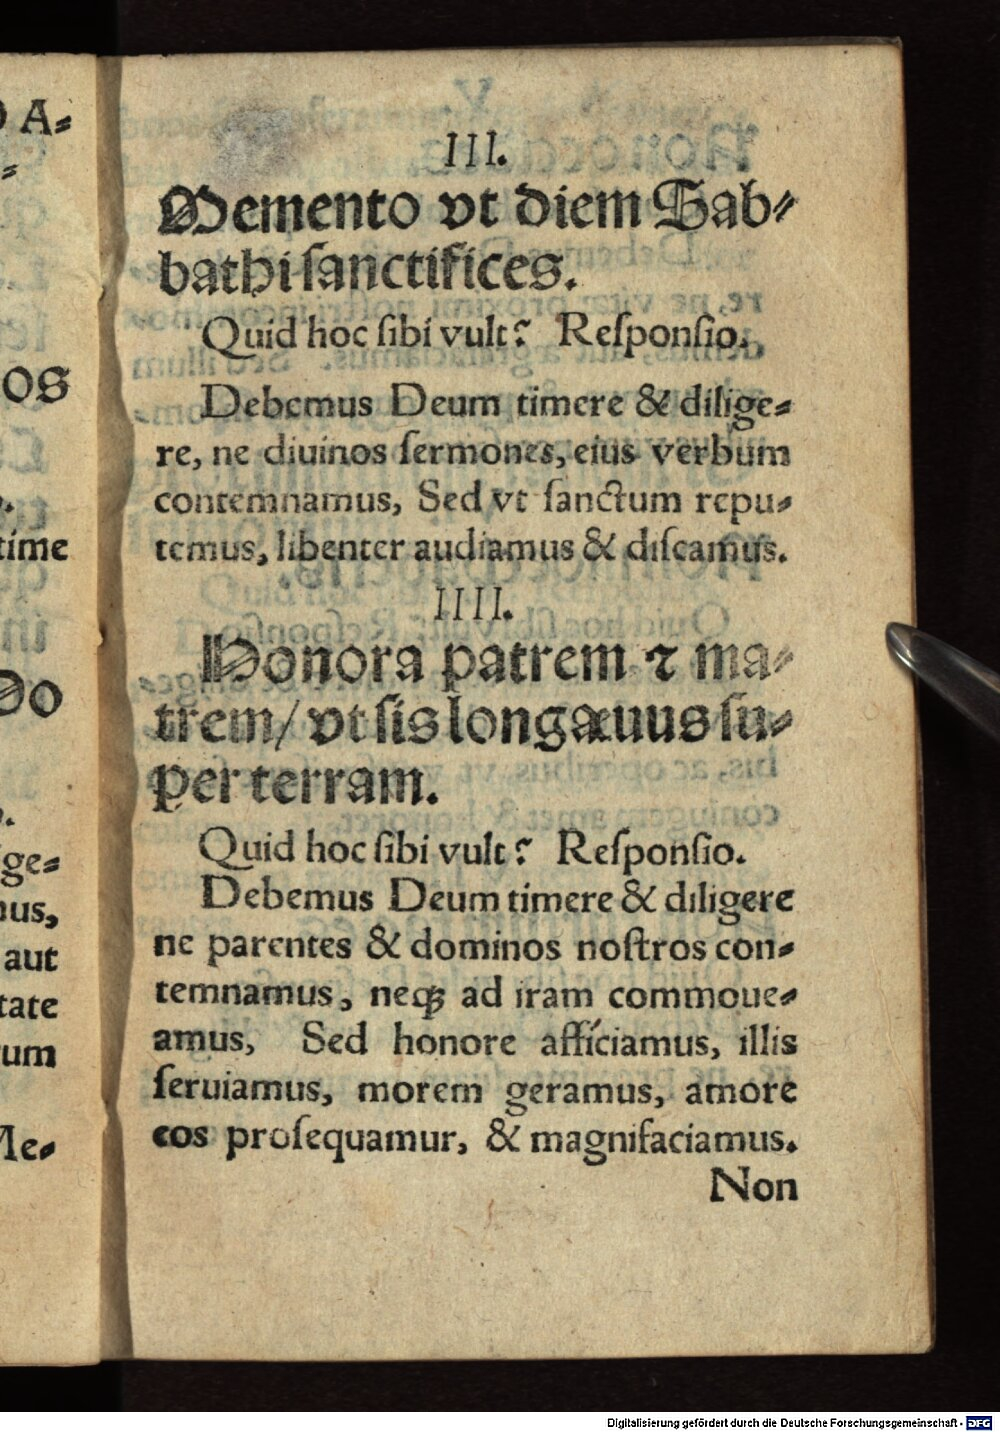 III.
Memento vt diem Sab⸗
bathi ſanctifices.
Quid hoc ſibi vult? Reſponſio.
Debemus Deum timere & dilige⸗
re, ne diuinos ſermones, eius verbum
contemnamus, Sed vt ſanctum repu⸗
temus, libenter audiamus & diſcamus.
IIII.
Honora patrem ⁊ ma⸗
trem/ vt ſis longæuus ſu⸗
per terram.
Quid hoc ſibi vult? Reſponſio.
Debemus Deum timere & diligere
ne parentes & dominos noſtros con⸗
temnamus, neqꝫ ad iram commoue⸗
amus, Sed honore afficíamus, illis
ſeruiamus, morem geramus, amore
eos proſequamur, & magnifaciamus.
Non
A⸗
⸗
OS
time
Do
ge⸗
us,
aut
tate
um
Me⸗
Digitalisierung gefördert durch die Deutsche Forschungsgemeinschaft - DFG